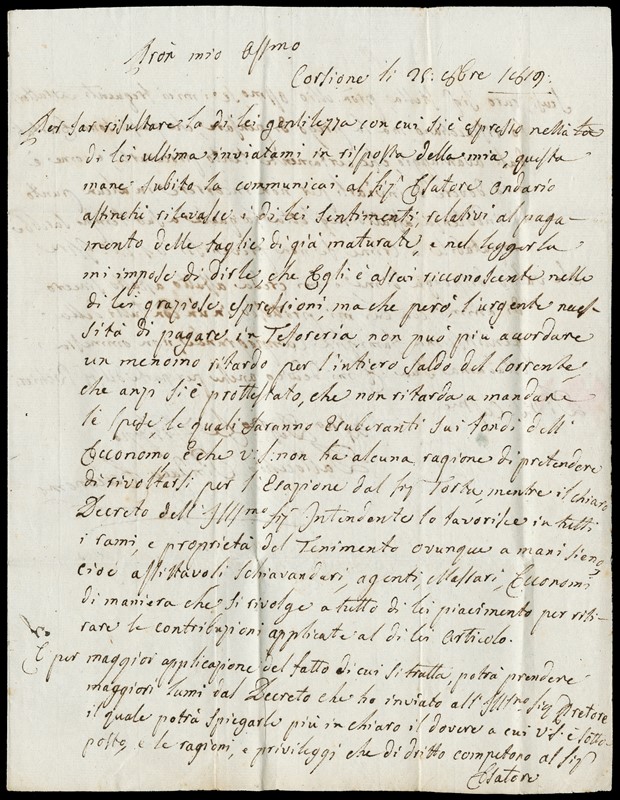 Pron mio Assmo
Corsione li 25: 8bre 1819:
Per far risultare la di lei gentilezza con cui si è espresso nella
di lei ultima inviatami in risposta della mia, questa
mane subito la communicai al Sigr Esatore Ondario
affinchi rilevasse i di lei sentimenti relativi al paga-
mento delle taglie di già maturate, e nel leggerla
mi impose di Dirle, che Egli è assai ricconoscente nelle
di lei graziose espressioni, ma che però l'urgente neces-
sità di pagare in Tesoreria, non può più accordare
un menomo ritardo per l'intiero saldo del Corrente,
che anzi si è prottestato, che non ritarda a mandare
le spese, le quali saranno esuberanti sui fondi dell'
Ecconomo è che V: S: non ha alcuna ragione di pretendere
di rivoltarsi per l'Esazione dal Sig Tosta mentre il chiaro
Decreto dell'Illmo Sig Intendente lo favorisce in tutti
i rami, e proprietà del Tenimento ovunque a mani sieno,
cioè affittavoli schiavandari, agenti, Massari, Economi
di maniera che si rivolge a tutto di lei piacimento per riti-
rare le contribuzioni applicate al di lei articolo.
E per maggior applicazione del fatto di cui si tratta potrà prendere
maggiori lumi dal Decreto che ho inviato all'Illmo Sig Pretore
il quale potrà spiegarle più in chiaro il dovere a cui V: S: è sotto-
posto, e le ragioni, e privileggi che di dritto competono al Sigr
Esatore